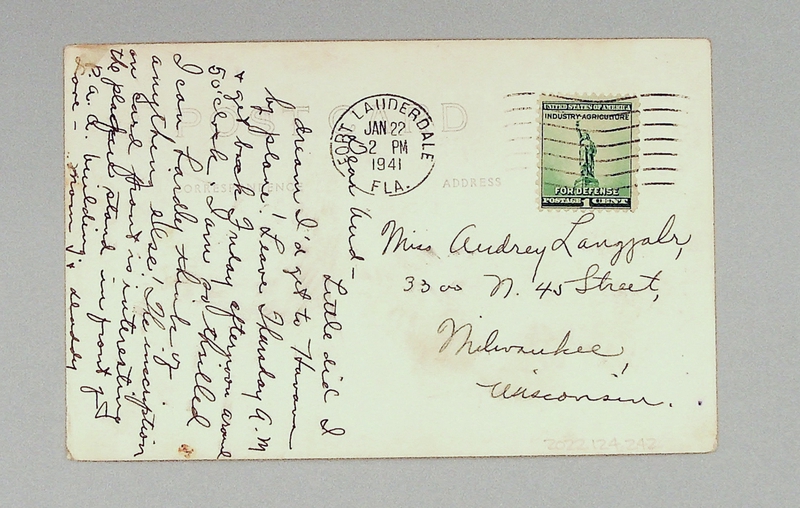 POST CARD
CORRESPONDENCE
ADDRESS
FORT LAUDERDALE
JAN 22
2 PM
1941
FLA.
UNITED STATES OF AMERICA
INDUSTRY-AGRICULTURE
FOR DEFENSE
POSTAGE 1 CENT
Dear Aud-
Little did I
dream I'd get to Havana
by plane! Leave Thursday A.M
+ get back Friday afternoon around
5 o'clock I am so thrilled
I can hardly think of
anything else! The inscription
on card front is interesting
the placque stand in front of
P.a.a. building
Love - Mom + daddy
Miss Audrey Langjahr,
3300 N. 45 Street,
Milwaukee,
Wisconsin.
2022.124.242